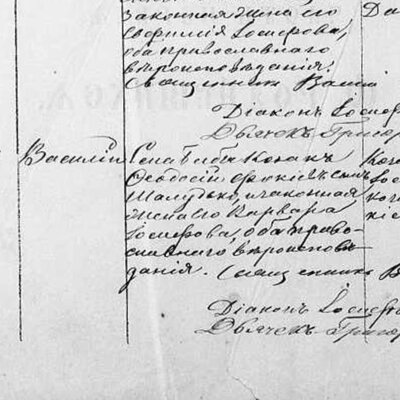 законная жена его
Евфимія Іосифова,
оба православнаго
вѣроисповѣданія.
Священникъ Васи
Діаконъ Іосиф
Дьячекъ Григор
Василій
Села Бабы Козакъ
Ѳеодосій Фокіевъ сынъ
и законная
жена его Варвара
Іосифова, оба право-
славнаго вѣроиспов-
данія. Священникъ В
Діаконъ Іосифо
Дьячекъ Григор